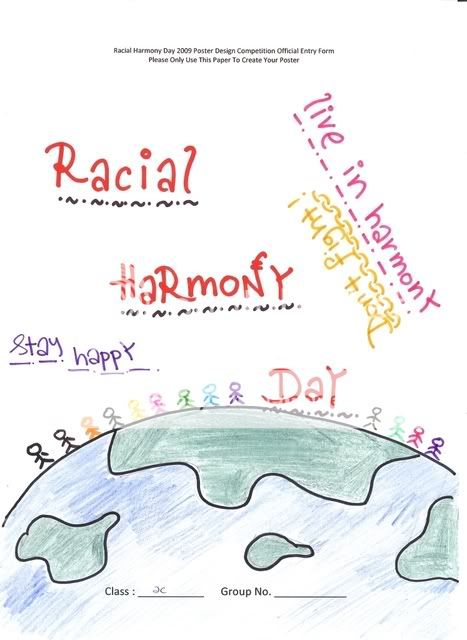 Racial Harmony Day 2009 Poster Design Competition Official Entry Form
Please Only Use This Paper To Create Your Poster
Racial
HaRmoNY
Day
live in harmony
Don't fight!
Stay happy
Class : 2C Group No.